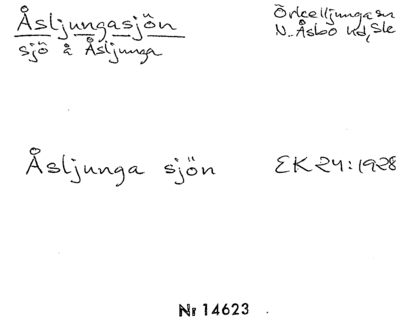 Åsljungasjön
sjö å Åsljunga
Örkelljunga sn
N. Åsbo hd, Sk
Åsljunga sjön
EK 24:1928
Nr 14623